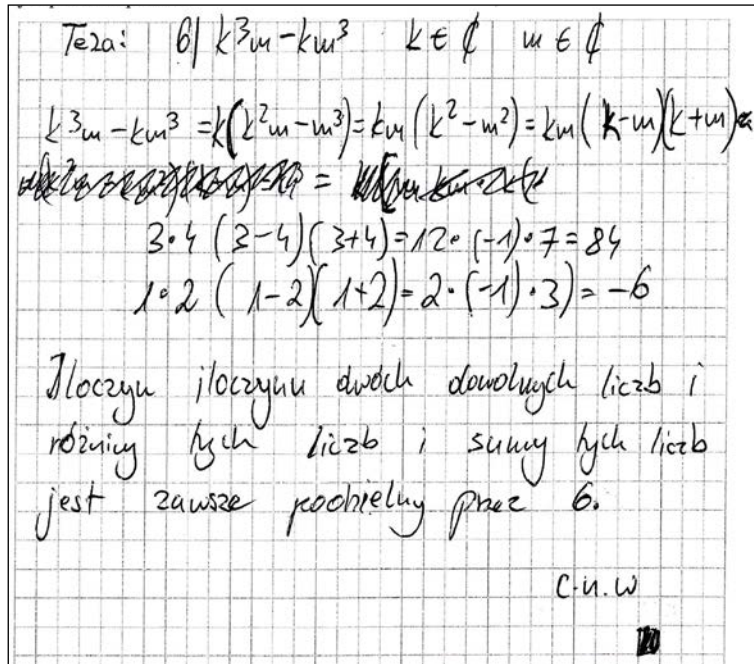 Teza: 6| k³m-km³ k ∈ ₵ m ∈ ₵
k³m-km³ = k(k²m-m³) = km(k²-m²) = km(k-m)(k+m)
=
3·4 (3-4)(3+4) = 12·(-1)·7 = 84
1·2 (1-2)(1+2) = 2·(-1)·3) = -6
Iloczyn iloczynu dwóch dowolnych liczb i
różnicy tych liczb i sumy tych liczb
jest zawsze podzielny przez 6.
C.n.w